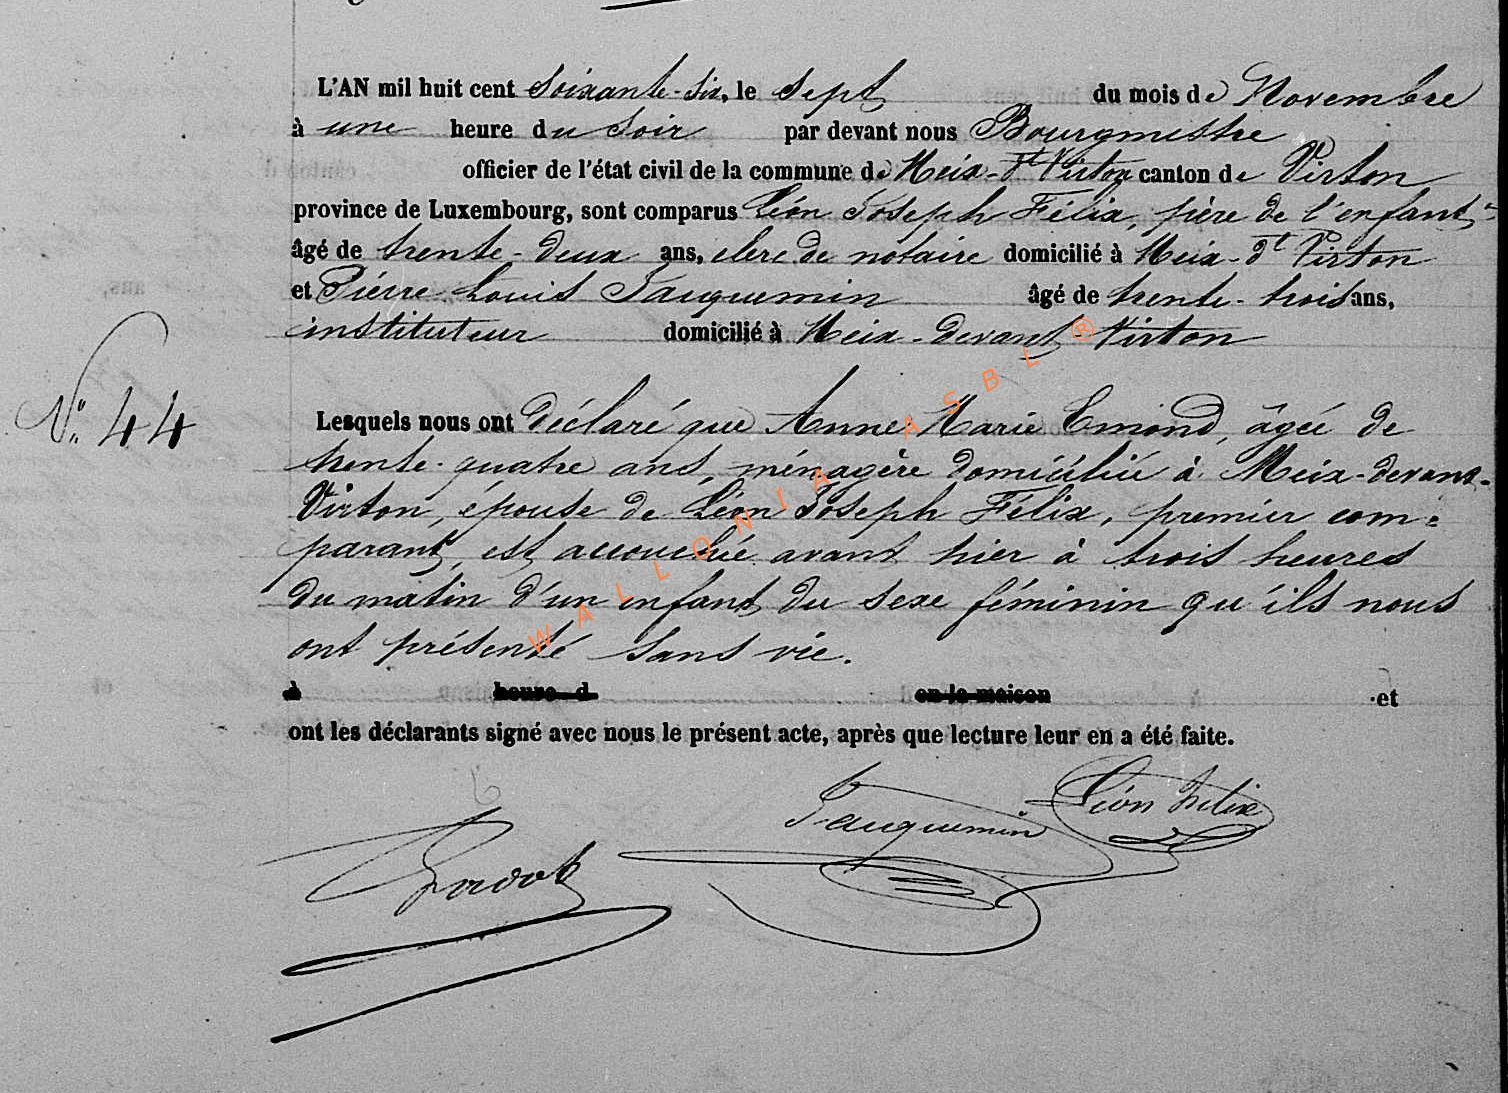 L'AN mil huit cent soixante-six, le sept du mois de Novembre
à une heure du soir par devant nous Bourgmestre
officier de l'état civil de la commune de Meix-dt Virton canton de Virton
province de Luxembourg, sont comparus Léon Joseph Félix, père de l'enfant,
âgé de trente-deux ans, clerc de notaire domicilié à Meix-dt Virton
et Pierre Louis Jauquemin âgé de trente-trois ans,
instituteur domicilié à Meix-devant Virton
N° 44
Lesquels nous ont déclaré que Anne Marie Emond, âgée de
trente-quatre ans, ménagère domiciliée à Meix-devant-
Virton, épouse de Léon Joseph Félix, premier com=
parant, est accouchée avant hier à trois heures
du matin d'un enfant du sexe féminin qu'ils nous
ont présenté sans vie.
à heure d en la maison et
ont les déclarants signé avec nous le présent acte, après que lecture leur en a été faite.
Jauquemin Léon Félix
WALLONIA ASBL ®